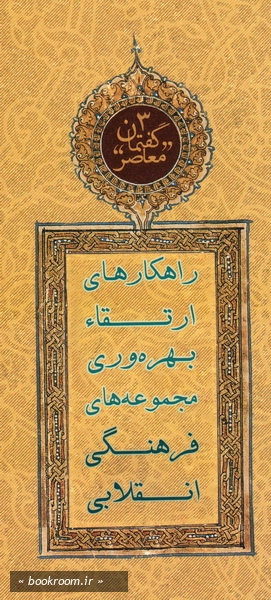 ۳
گفتمان
«معاصر»
راهکارهای
ارتقاء
بهره‌وری
مجموعه‌های
فرهنگی
انقلابی
« bookroom.ir »